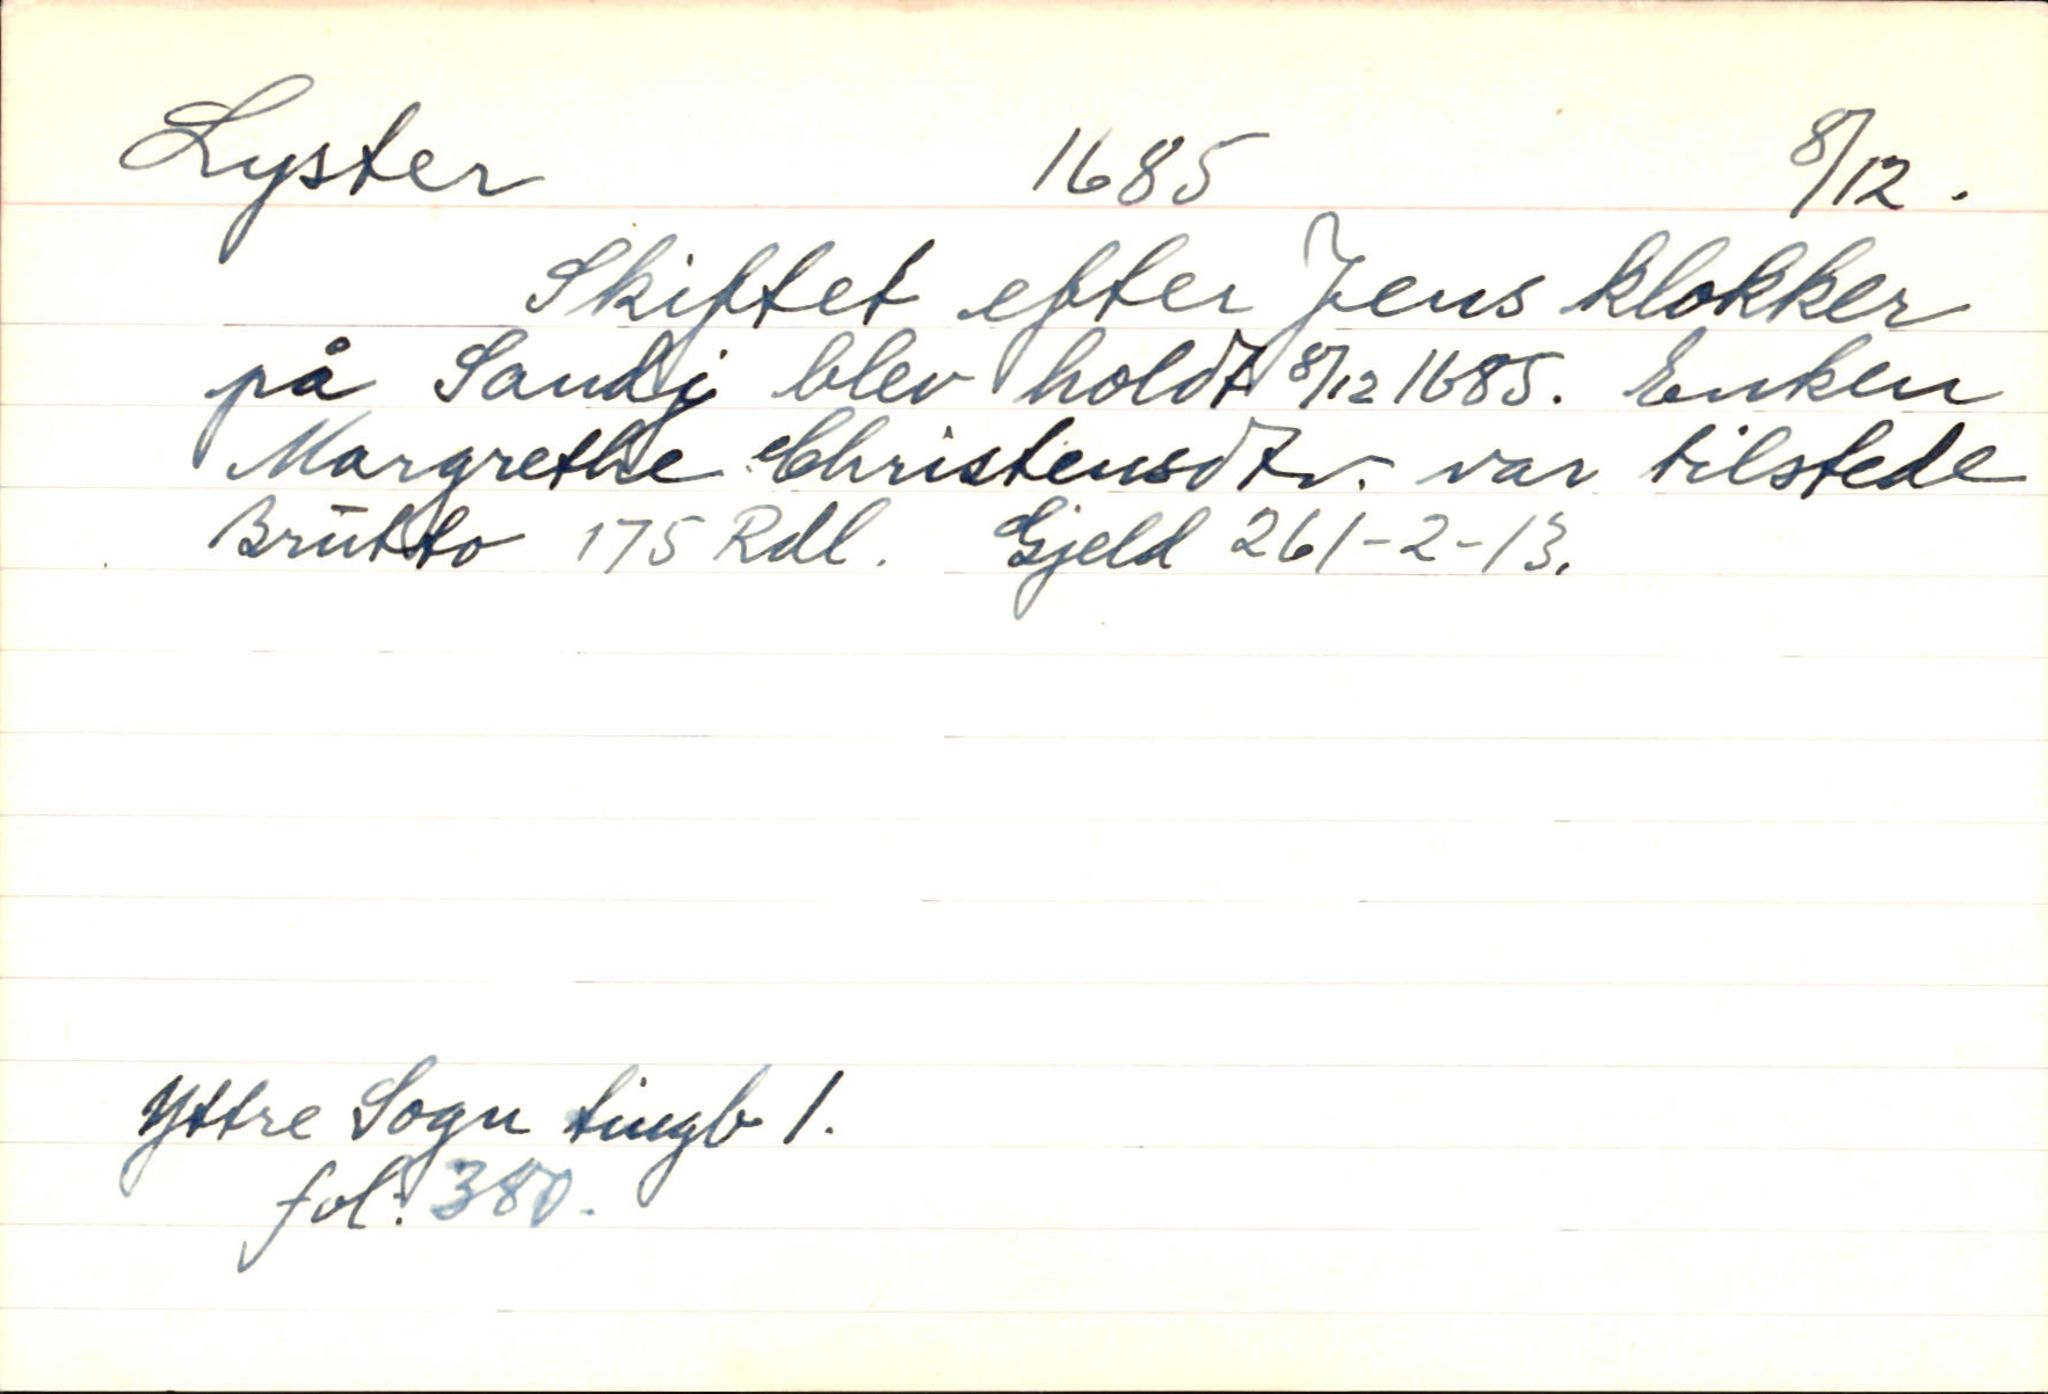 Lyster 1685 8/12.
Skiftet efter Jens klokker
på Sandj blev holdt 8/12 1685. Enken
Margrethe Christensdtr. var tilstede
Brutto 175 Rdl. Gjeld 261-2-13.
Yttre Sogn tingb 1.
fol: 380.